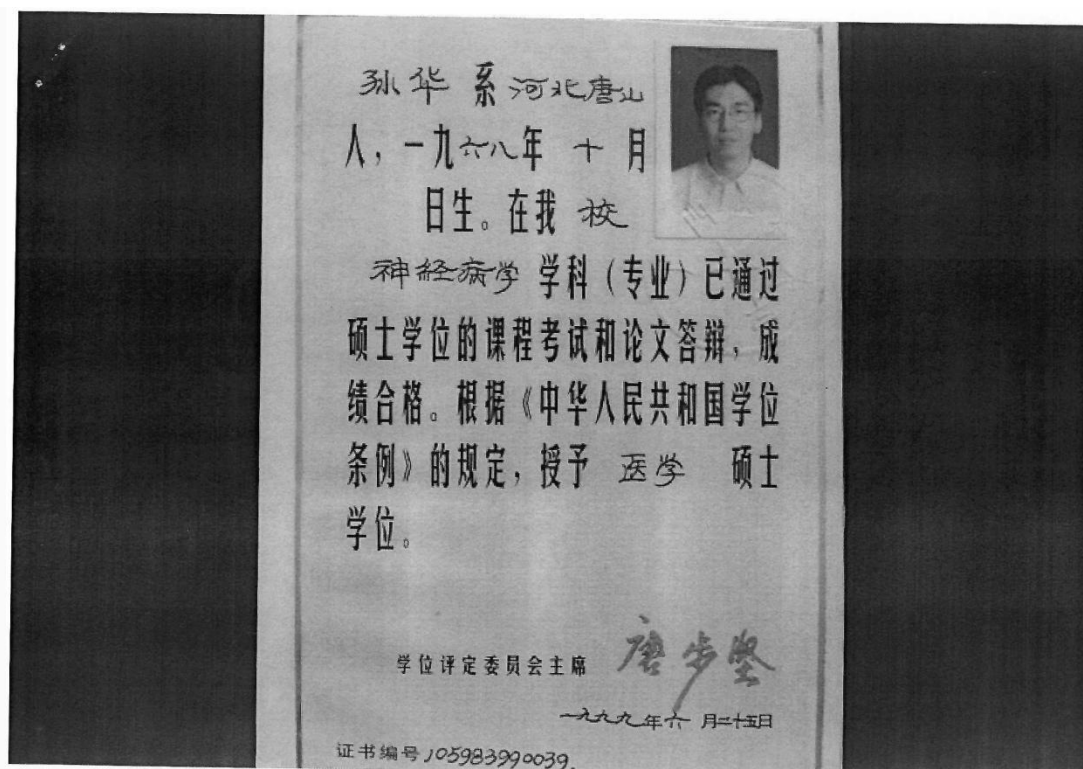 孙华 系 河北唐山
人，一九六八年 十 月
日生。在我 校
神经病学 学科（专业）已通过
硕士学位的课程考试和论文答辩，成
绩合格。根据《中华人民共和国学位
条例》的规定，授予 医学 硕士
学位。
学位评定委员会主席 唐步坚
一九九九年六 月二十五日
证书编号 105983990039.